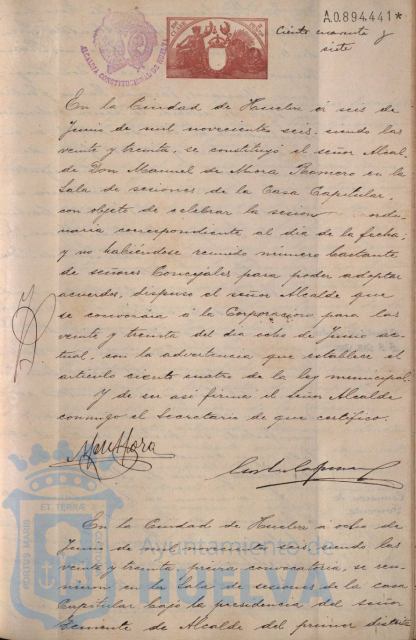 A.0.894.441*
Ciento cuarenta y
siete
ALCALDIA CONSTITUCIONAL DE HUELVA
En la Ciudad de Huelva á seis de
Junio de mil novecientos seis, siendo las
veinte y treinta, se constituyó el señor Alcal-
de Don Manuel de Mora Romero en la
Sala de sesiones de la Casa Capitular,
con objeto de celebrar la sesion ordi-
naria correspondiente al dia de la fecha;
y no habiéndose reunido número bastante
de señores Concejales para poder adoptar
acuerdo, dispuso el señor Alcalde que
se convocára á la Corporación para las
veinte y treinta del dia ocho de Junio ac-
tual, con la advertencia que establece el
artículo ciento cuatro de la ley municipal.
Y de ser asi firma el Señor Alcalde
conmigo el Secretario de que certifico.
M de Mora
En la Ciudad de Huelva á ocho de
Junio de mil novecientos seis, siendo las
veinte y treinta, prévia convocatoria, se reu-
nieron en la Sala de sesiones de la casa
Capitular bajo la presidencia del señor
Teniente de Alcalde del primer distrito
Ayuntamiento de
HUELVA
PORTUS MARIS
ET TERRAE